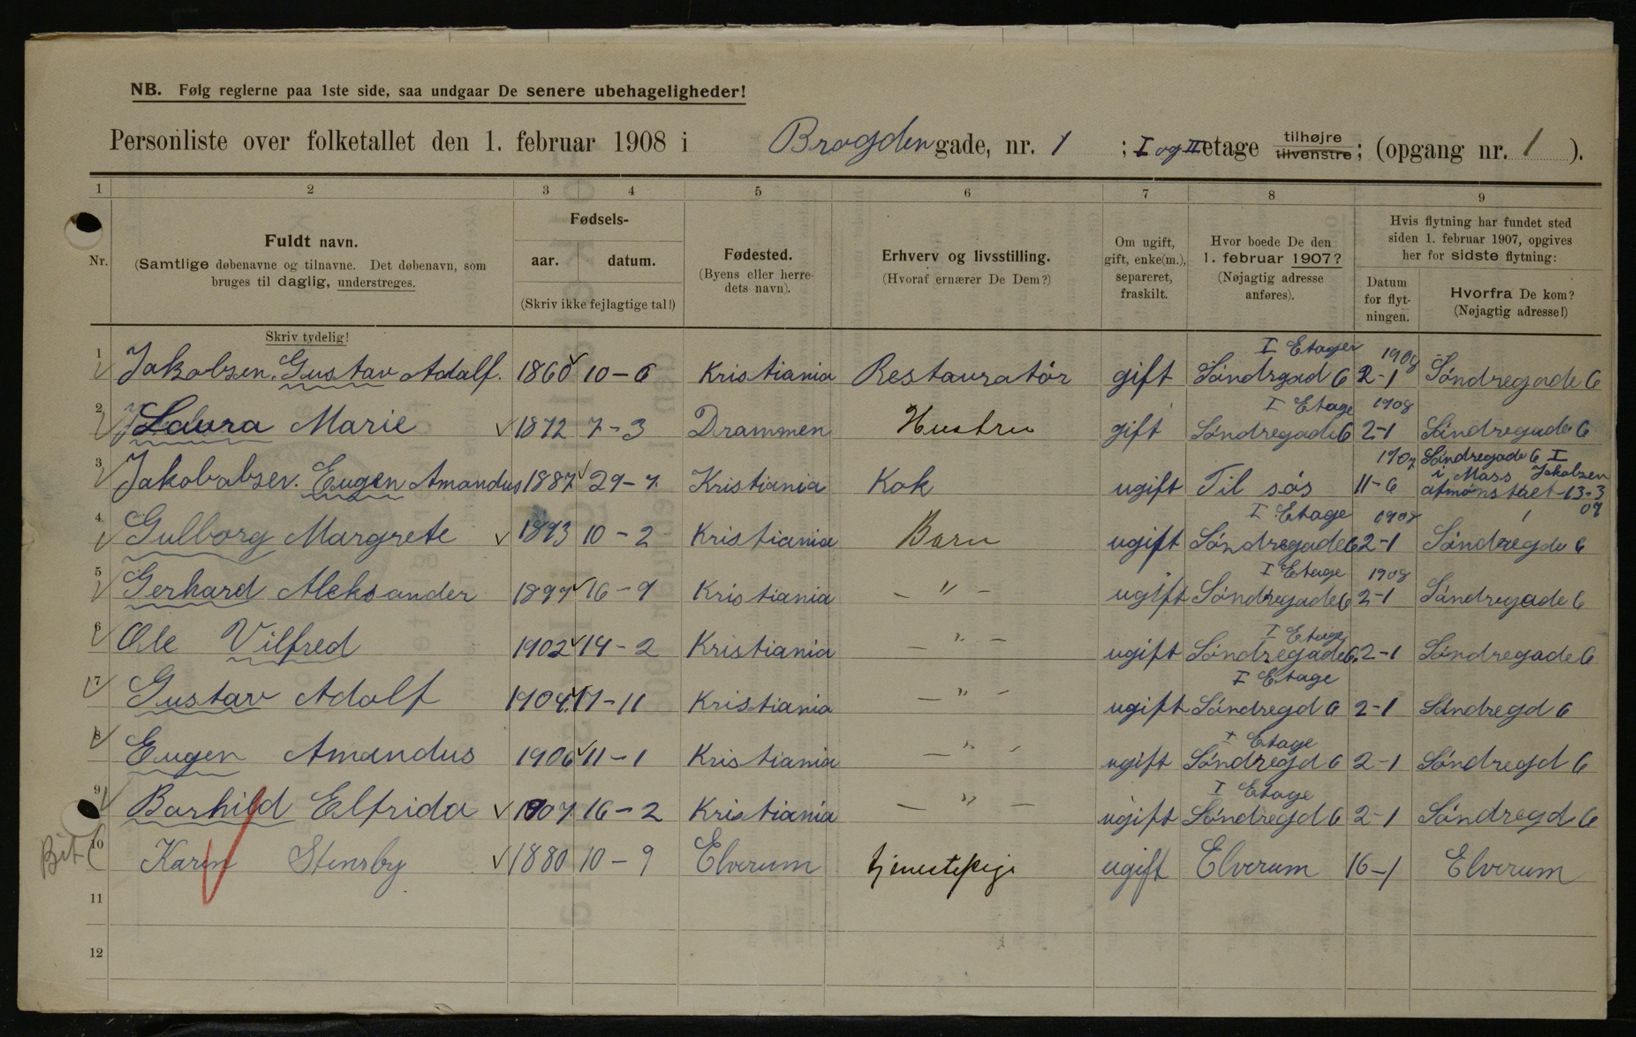 NB. Følg reglerne paa 1ste side, saa undgaar De senere ubehageligheder!
Personliste over folketallet den 1. februar 1908 i Brogden gade, nr. 1 ; I og II etage tilhøjre tilvenstre; (opgang nr. 1 ).
1 2 3 4 5 6 7 8 9
Nr. Fuldt navn. (Samtlige døbenavne og tilnavne. Det døbenavn, som bruges til daglig, understreges.
Skriv tydelig!
Fødsels- aar. datum. (Skriv ikke fejlagtige tal!)
Fødested. (Byens eller herredets navn).
Erhverv og livsstilling. (Hvoraf ernærer De Dem?)
Om ugift, gift, enke(m.), separeret, fraskilt.
Hvor boede De den 1. februar 1907? (Nøjagtig adresse anføres).
Hvis flytning har fundet sted siden 1. februar 1907, opgives her for sidste flytning:
Datum for flytningen.
Hvorfra De kom? (Nøjagtig adresse!)
1 Jakobsen. Gustav Adolf. 1860 10-6 Kristiania Restauratör gift I Etager Söndrgad 6 1908 2-1 Söndregade 6
2 Laura Marie 1872 7-3 Drammen Hustru gift I Etage Söndregade 6 1908 2-1 Söndregade 6
3 Jakobabsen. Eugen Amandus 1887 29-7 Kristiania Kok ugift Til sös 1907 11-6 Söndregade 6 I i Mass Jakobsen afmönstret 13-3 07
4 Gulborg Margrete 1893 10-2 Kristiania Barn ugift I Etage Söndregade 6 1908 2-1 Söndregde 6
5 Gerhard Aleksander 1897 16-9 Kristiania - " - ugift I Etage Söndregade 6 1908 2-1 Söndregade 6
6 Ole Vilfred 1902 14-2 Kristiania - " - ugift I Etage Söndregade 6. 2-1 Söndregade 6
7 Gustav Adolf 1904 17-11 Kristiania - " - ugift I Etage Söndregd 6 2-1 Söndregd 6
8 Eugen Amandus 1906 11-1 Kristiania - " - ugift I Etage Söndregd 6 2-1 Söndregd 6
9 Borhild Elfrida 1907 16-2 Kristiania - " - ugift I Etage Söndregd 6 2-1 Söndregd 6
10 Karen Stensby 1880 10-9 Elverum tjenestepige ugift Elverum 16-1 Elverum
11
12